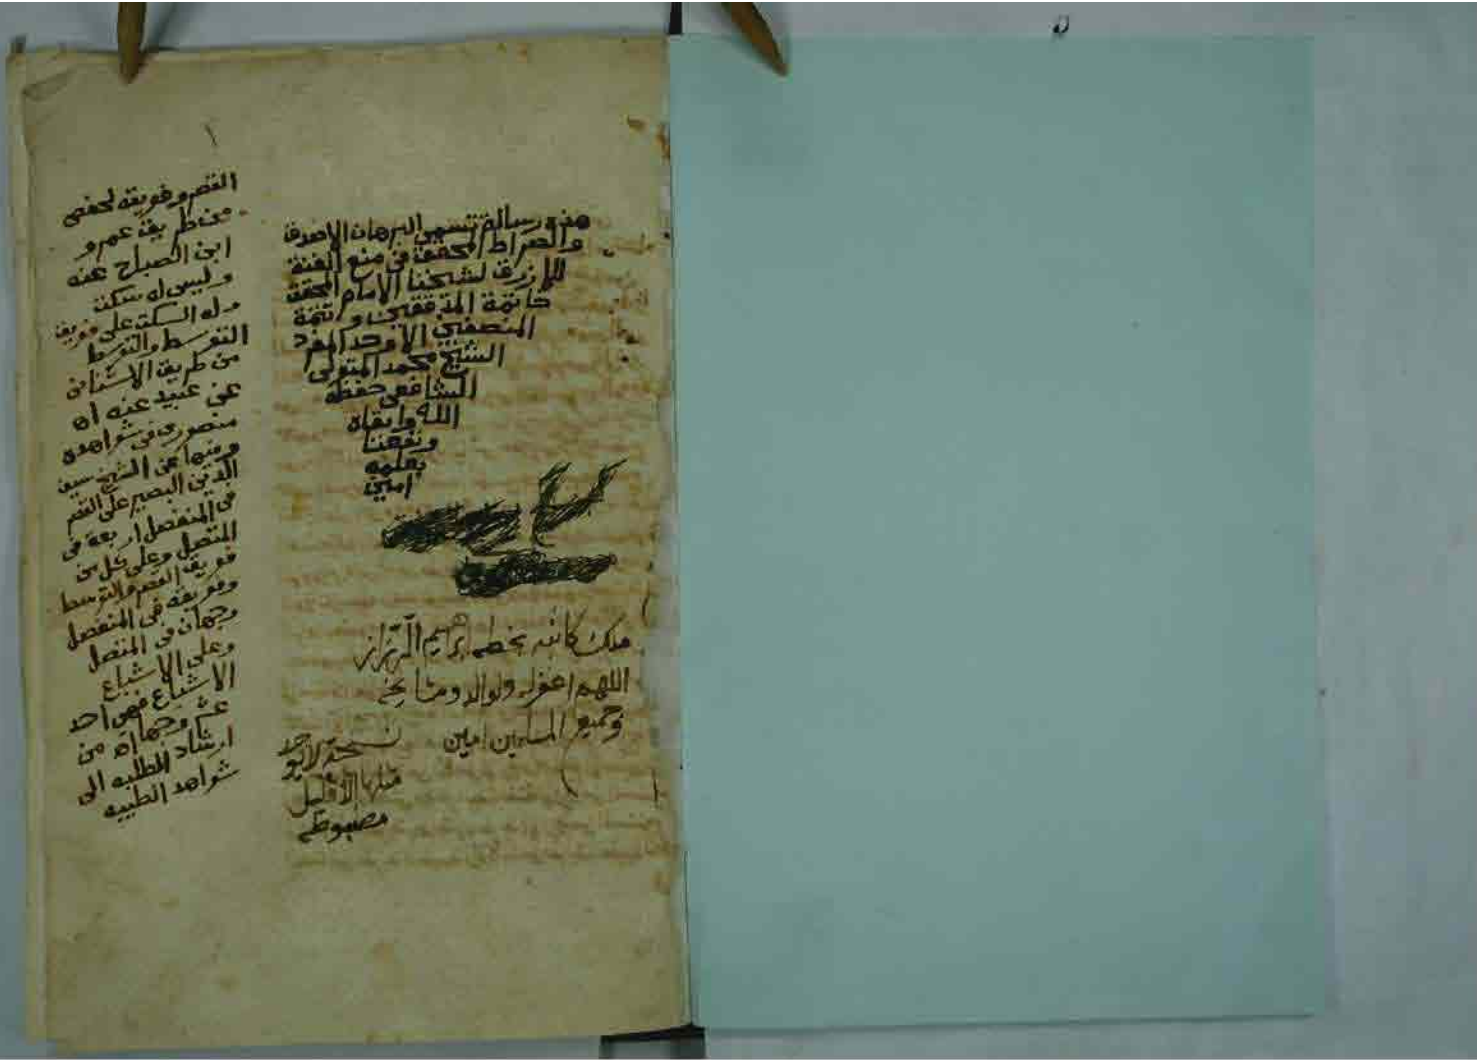 ١
هذه رسالة تسمى البرهان الاصدق
والصراط المحقق في منع الغنة
للازرق لشيخنا الامام المحقق
خاتمة المدققين وتتمة
المنصفين الاوحد المفرد
الشيخ محمد المتولى
الشافعى حفظه
الله وابقاه
ونفعنا
بعلمه
امين
ملك كاتبه بخطه ابرهيم
اللهم اغفر له ولوالده ومشايخه
وجميع المسلمين امين
نسخة لا يوجد
مثلها الا قليل
مضبوطه
القصر وفويقه لحفص
من طريق عمرو
ابن الصباح عنه
وليس له سكت
وله السكت على فويق
التوسط والتوسط
من طريق الاشنانى
عن عبيد عنه اه
منصورى في شواهده
ومنها عن الشيخ سيف
الدين البصير على القصر
في المنفصل اربعة في
المتصل وعلى كل من
فويق القصر والتوسط
وفويقه في المنفصل
وجهان في المتصل
وعلى الاشباع
الاشباع فهى احد
عشر وجها اه من
ارشاد الطلبه الى
شواهد الطيبه